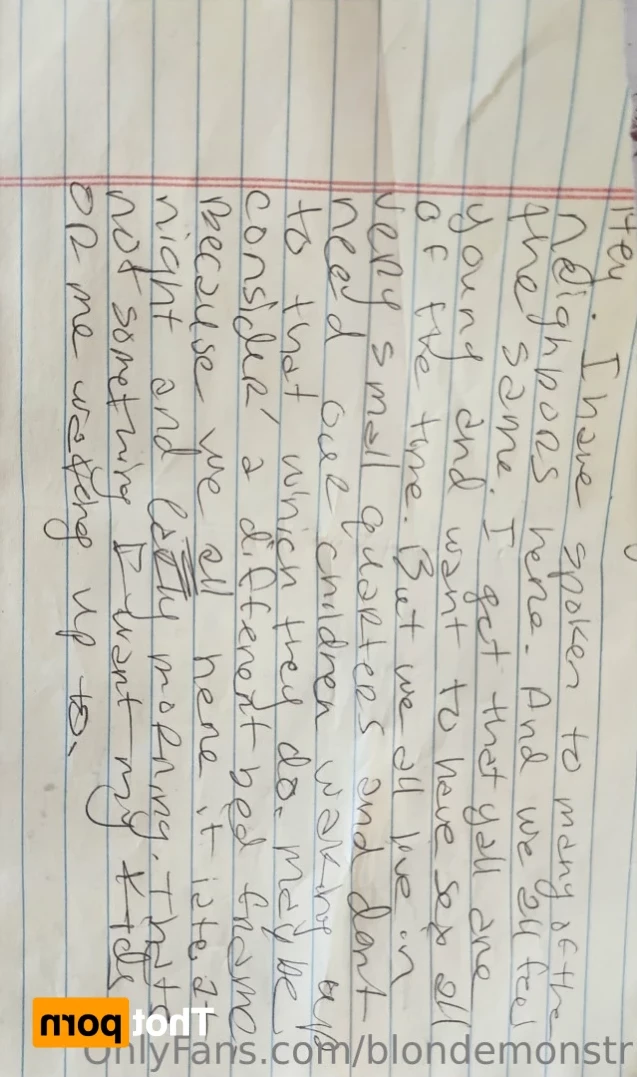 Hey. I have spoken to many of the
neighbors here. And we all feel
the same. I get that yall are
young and want to have sex all
of the time. But we all live in
very small quarters and dont
need our children waking up
to that which they do. Maybe
consider a different bed frame
Because we all here it late at
night and early morning. Thats
not something I want my kids
or me waking up to.
Thot porn
OnlyFans.com/blondemonstr